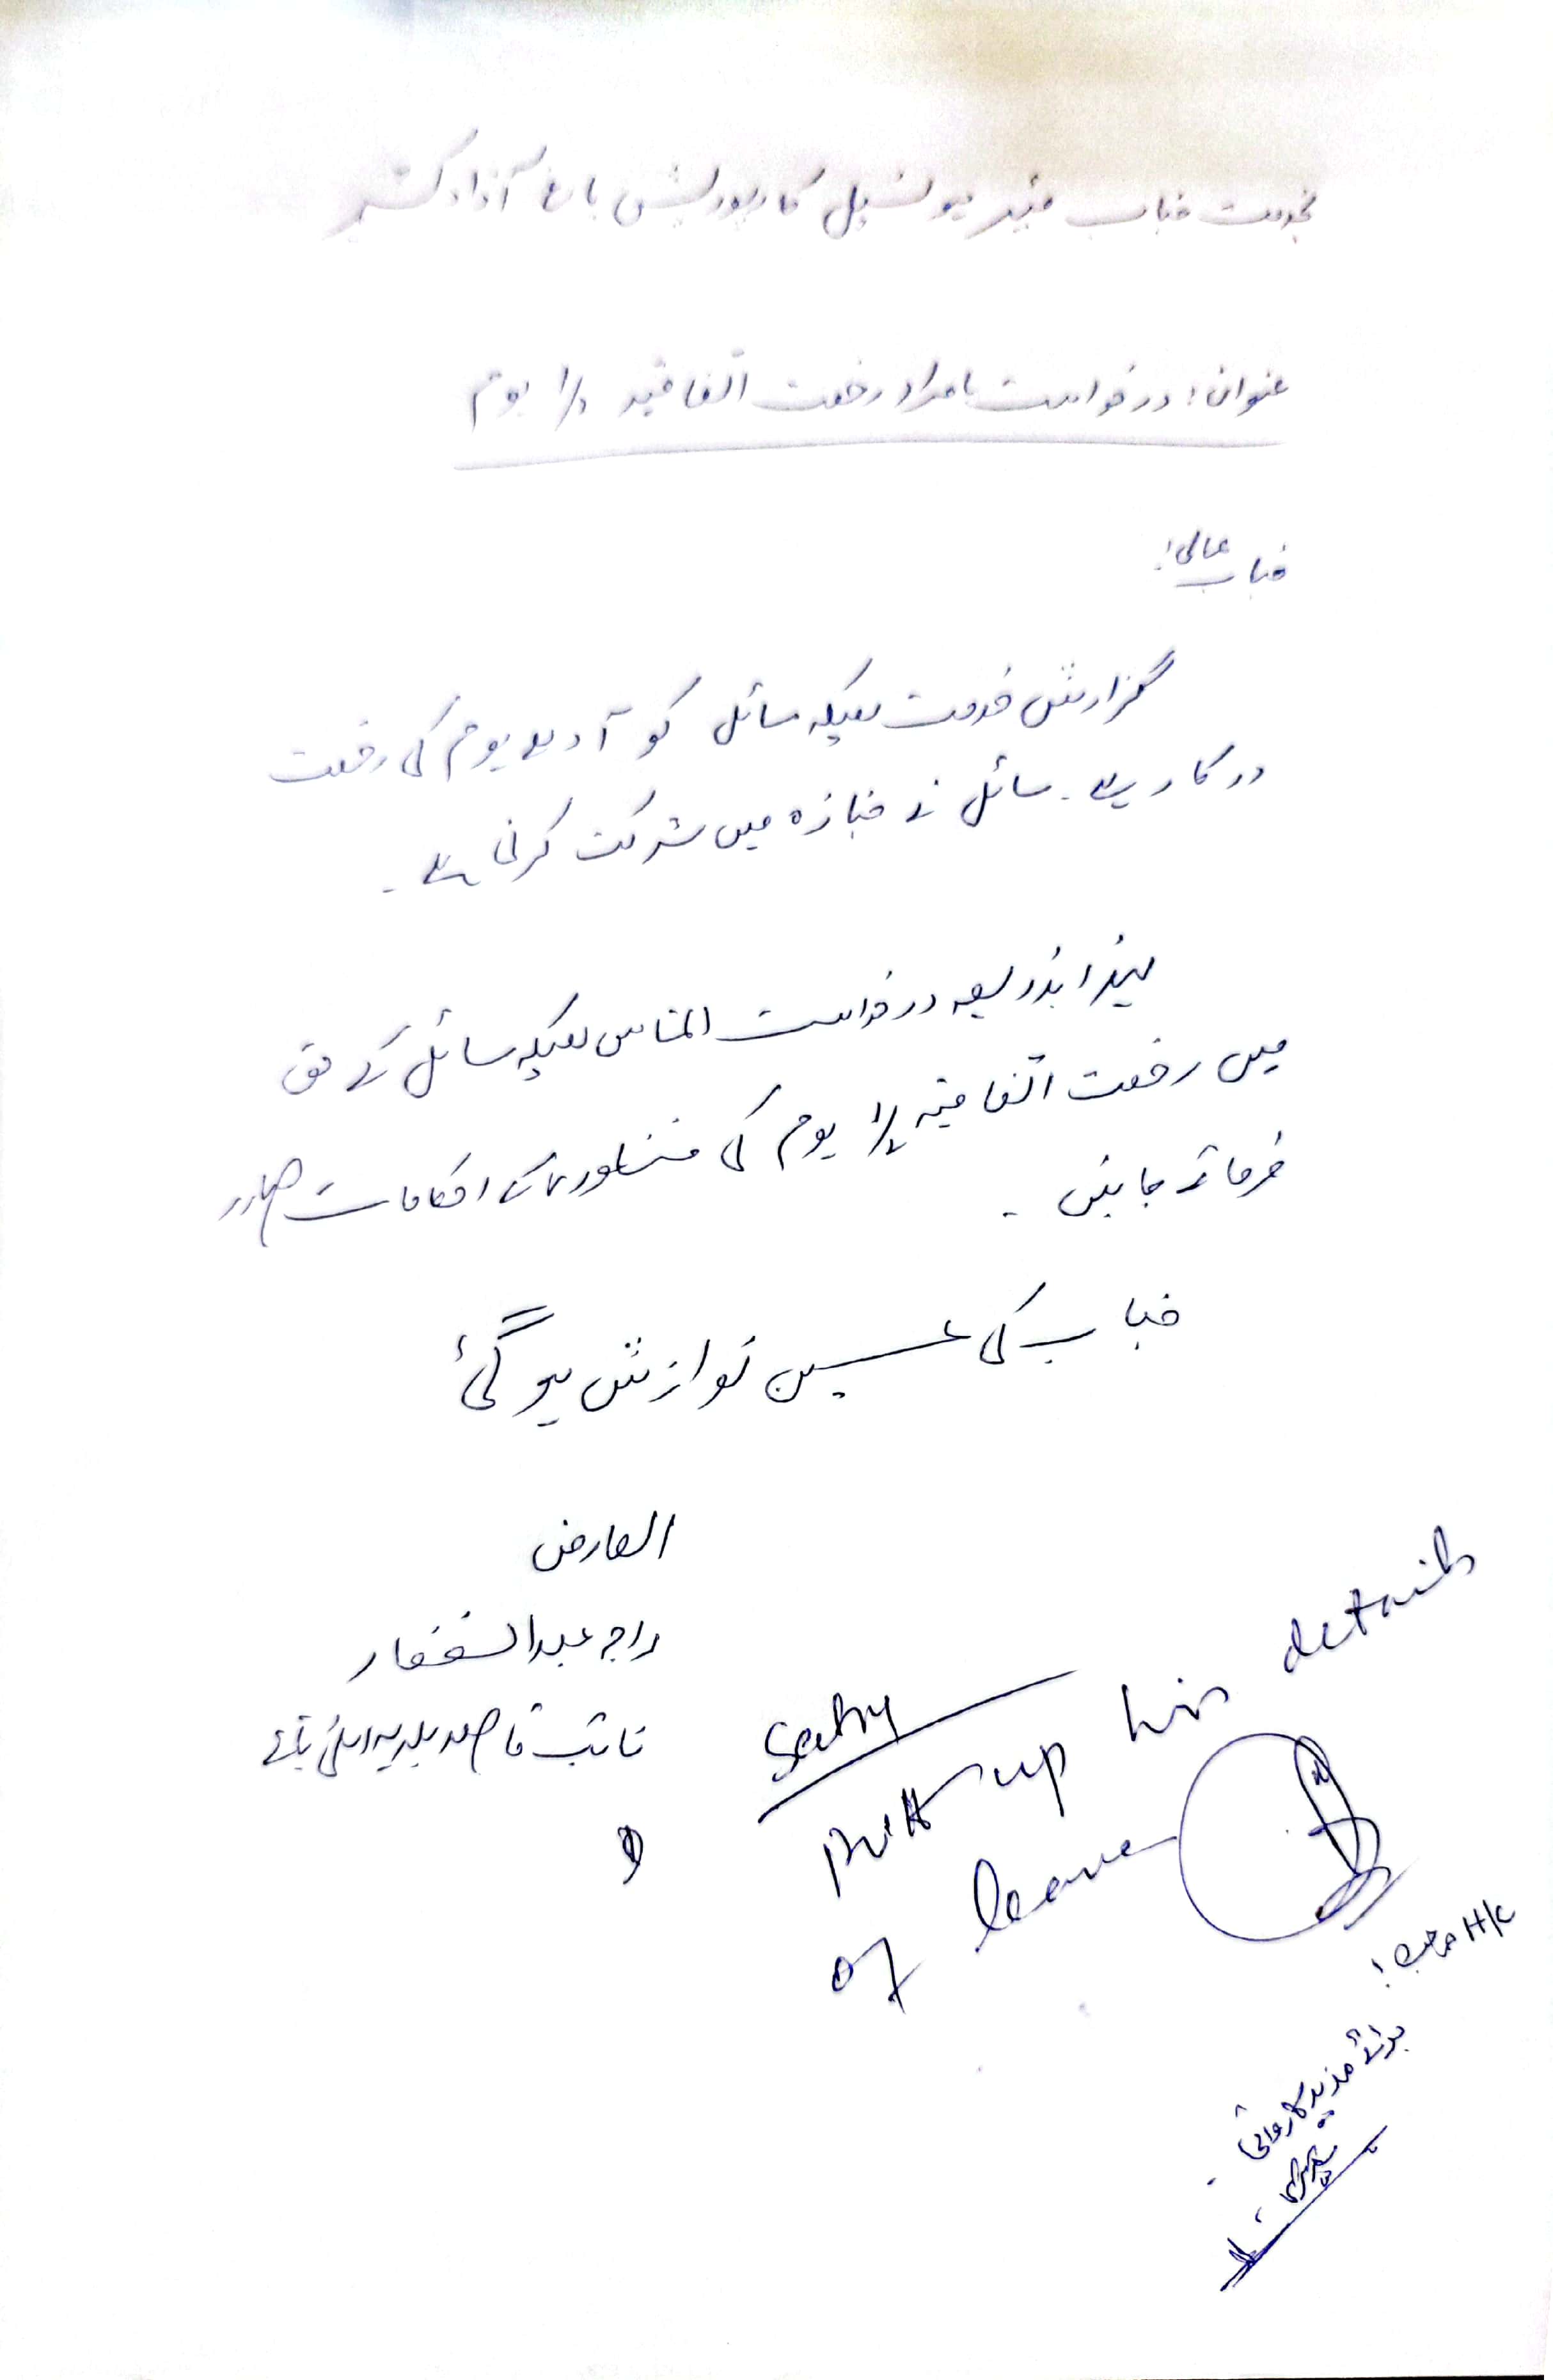 بخدمت جناب میئر میونسپل کارپوریشن باغ آزاد کشمیر
عنوان: درخواست بامراد رخصت اتفاقیہ 1/- یوم
جناب عالی!
گزارش خدمت ہیکہ سائل کو آدھے یوم کی رخصت
درکار ہے۔ سائل نے جنازہ میں شرکت کرنی ہے۔
لہذا بذریعہ درخواست التماس ہیکہ سائل کے حق
میں رخصت اتفاقیہ یوم کی منظوری کے احکامات صادر
فرمائے جائیں۔
جناب کی عین نوازش ہو گئی
العارض
راجہ عبدالغفار
نائب قاصد بلدیہ باغ
Putt up his details
of leave
H/C صاحب!
برائے مزید کاروائی۔